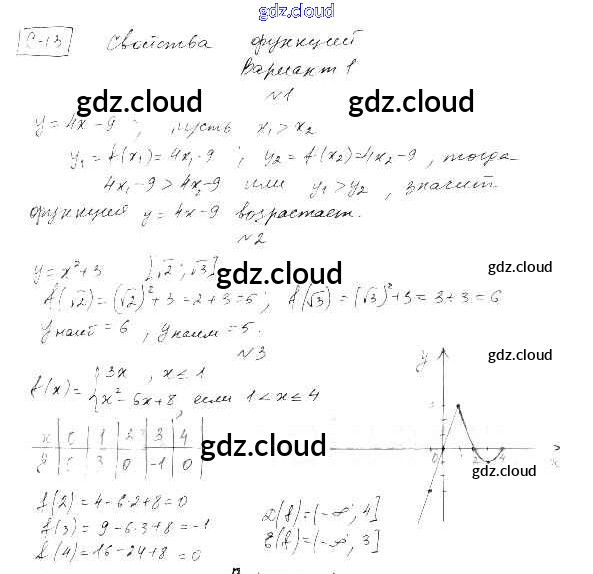 gdz.cloud
С-13 Свойства функций
Вариант 1
№1
gdz.cloud gdz.cloud
y = 4x - 9 ; пусть x₁ > x₂
y₁ = f(x₁) = 4x₁ - 9 ; y₂ = f(x₂) = 4x₂ - 9 , тогда
4x₁ - 9 > 4x₂ - 9 или y₁ > y₂ , значит
функция y = 4x - 9 возрастает.
№2
y = x² + 3 [√2 ; √3]
gdz.cloud gdz.cloud
f(√2) = (√2)² + 3 = 2 + 3 = 5 ; f(√3) = (√3)² + 3 = 3 + 3 = 6
yнаиб = 6 , yнаим = 5.
№3
gdz.cloud
f(x) = { 3x , x ≤ 1
x² - 6x + 8 если 1 < x ≤ 4
y
x | 0 | 1 | 2 | 3 | 4
y | 0 | 3 | 0 | -1 | 0
gdz.cloud
0 2 4 x
gdz.cloud
f(2) = 4 - 6·2 + 8 = 0
f(3) = 9 - 6·3 + 8 = -1
f(4) = 16 - 24 + 8 = 0
D(f) = (-∞; 4]
E(f) = (-∞; 3]
gdz.cloud